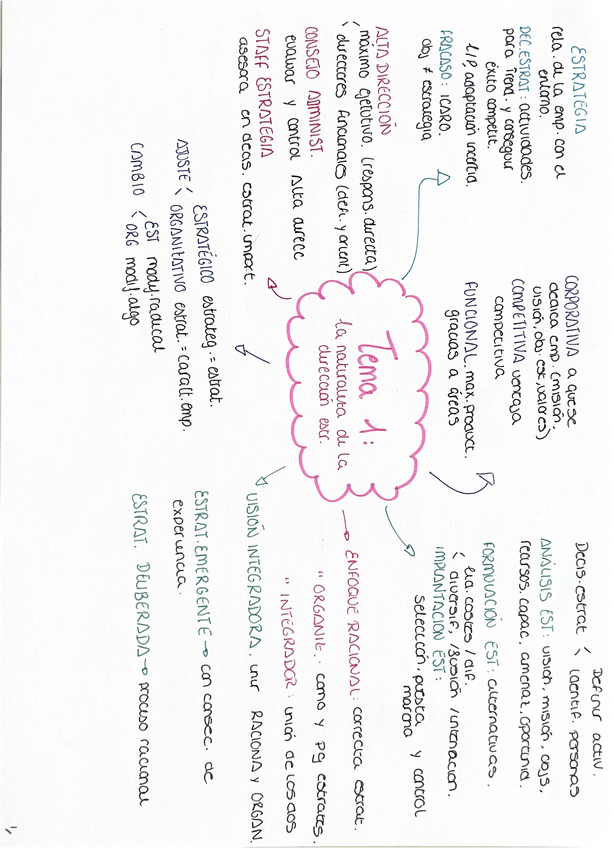 ESTRATEGIA
rela. de la emp. con el
entorno.
DEC. ESTRAT: actividades.
para rend. y conseguir
éxito competit.
l/P, adaptación inercia.
FRACASO: ICARO.
obj ≠ estrategia
ALTA DIRECCIÓN
máximo ejecutivo. (respons. directa)
directores funcionales (
CONSEJO ADMINIST.
evaluar y control Alta direcc
STAFF ESTRATEGIA
asesora en decis. estrat. import.
CORPORATIVA a que se
dedica emp. (misión,
visión, obj. est, valores)
COMPETITIVA ventaja
competitiva
FUNCIONAL. max. product.
gracias a áreas
Tema 1:
la naturaleza de la
dirección estr.
ESTRATÉGICO estrateg. = estrat.
AJUSTE < ORGANIZATIVO estrat. = caract. emp.
EST modif. radical
CAMBIO < ORG modif. algo
Definir activ.
Decis. estrat < identif. personas
ANÁLISIS EST: visión, misión, objs,
recursos, capac, amenaz, oportunid.
FORMULACIÓN EST: alternativas.
lid. costes / dif.
< diversif, /fusión /internacion.
IMPLANTACIÓN EST:
selección, puesta y control
marcha
ENFOQUE RACIONAL: correcta estrat.
" ORGANIZ. como y pq estrates.
" INTEGRADOR: unión de los dos
VISIÓN INTEGRADORA. unir RACIONA Y ORGAN.
ESTRAT. EMERGENTE → con consec. de
experiencia.
ESTRAT. DELIBERADA → proceso racional